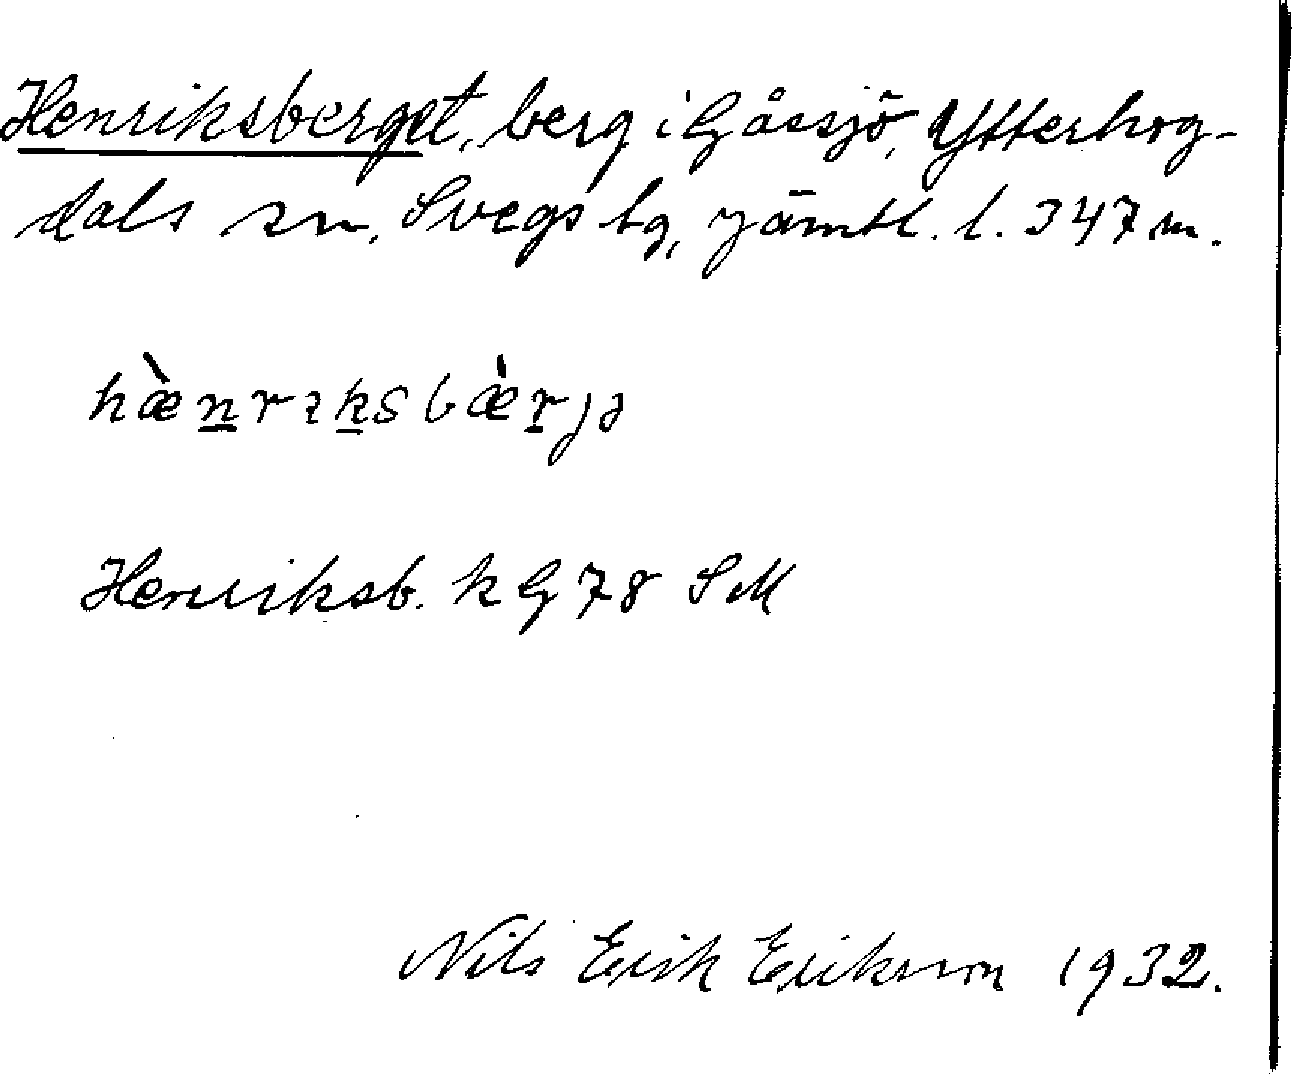 Henriksberget, berg i Gåssjö, Ytterhog-
dals sn, Svegs tg, Jämtl. l. 347 m.
hæ̀n̲rık̲sbæ̀r̲jə
Henriksb. k G 78 SM
Nils Erik Erikson 1932.